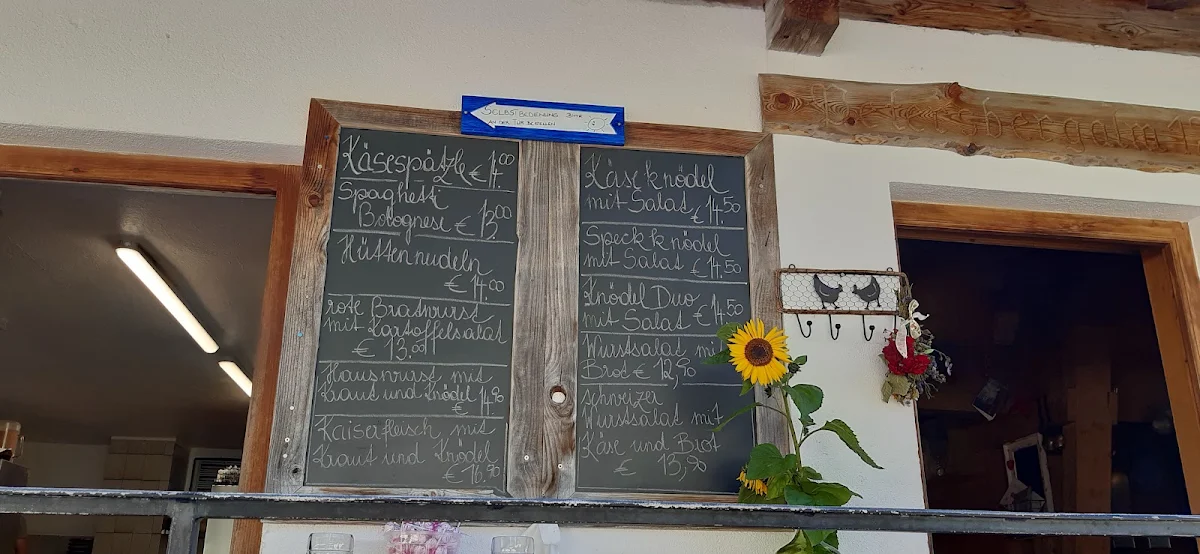 SELBSTBEDIENUNG BITTE
AN DER TÜR BESTELLEN
Käsespätzle € 14.00
Spaghetti
Bolognese € 13.00
Hüttennudeln
€ 14.00
rote Bratwurst
mit Kartoffelsalat
€ 13.00
Hauswurst mit
Kraut und Knödel
€ 14.90
Kaiserfleisch mit
Kraut und Knödel
€ 16.90
Käseknödel
mit Salat € 14.50
Speckknödel
mit Salat € 14.50
Knödel Duo
mit Salat € 14.50
Wurstsalat mit
Brot € 12,90
schweizer
Wurstsalat mit
Käse und Brot
€ 13,90